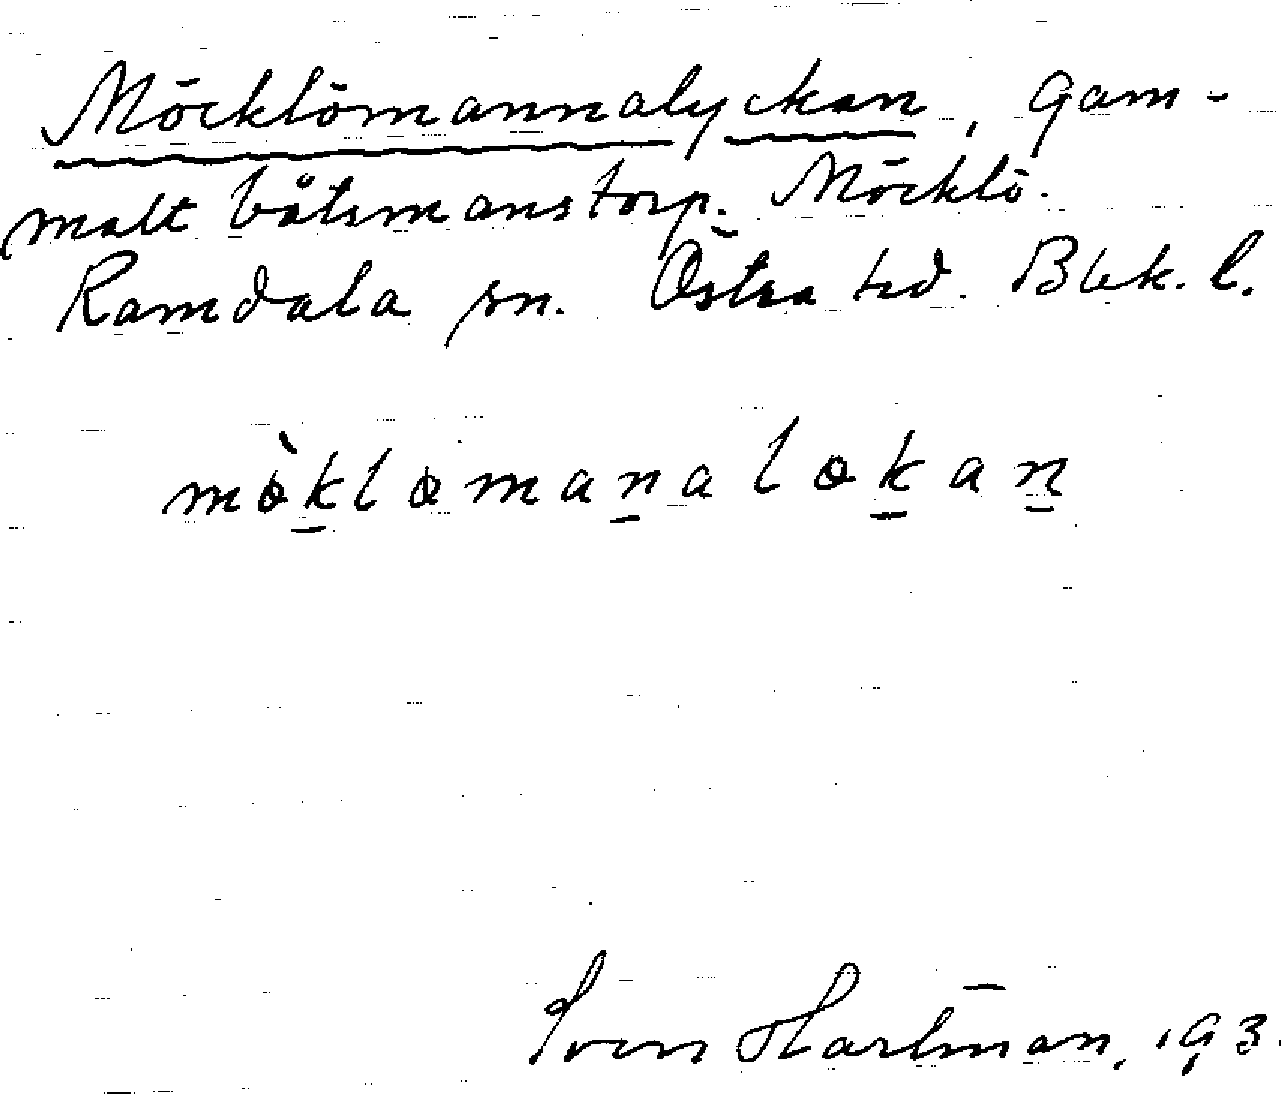 Möcklömannalyckan, Gam-
malt båtsmanstorp. Möcklö.
Ramdala sn. Östra hd. Blek. l.
mòklömanalökan
Sven Hartman, 193.